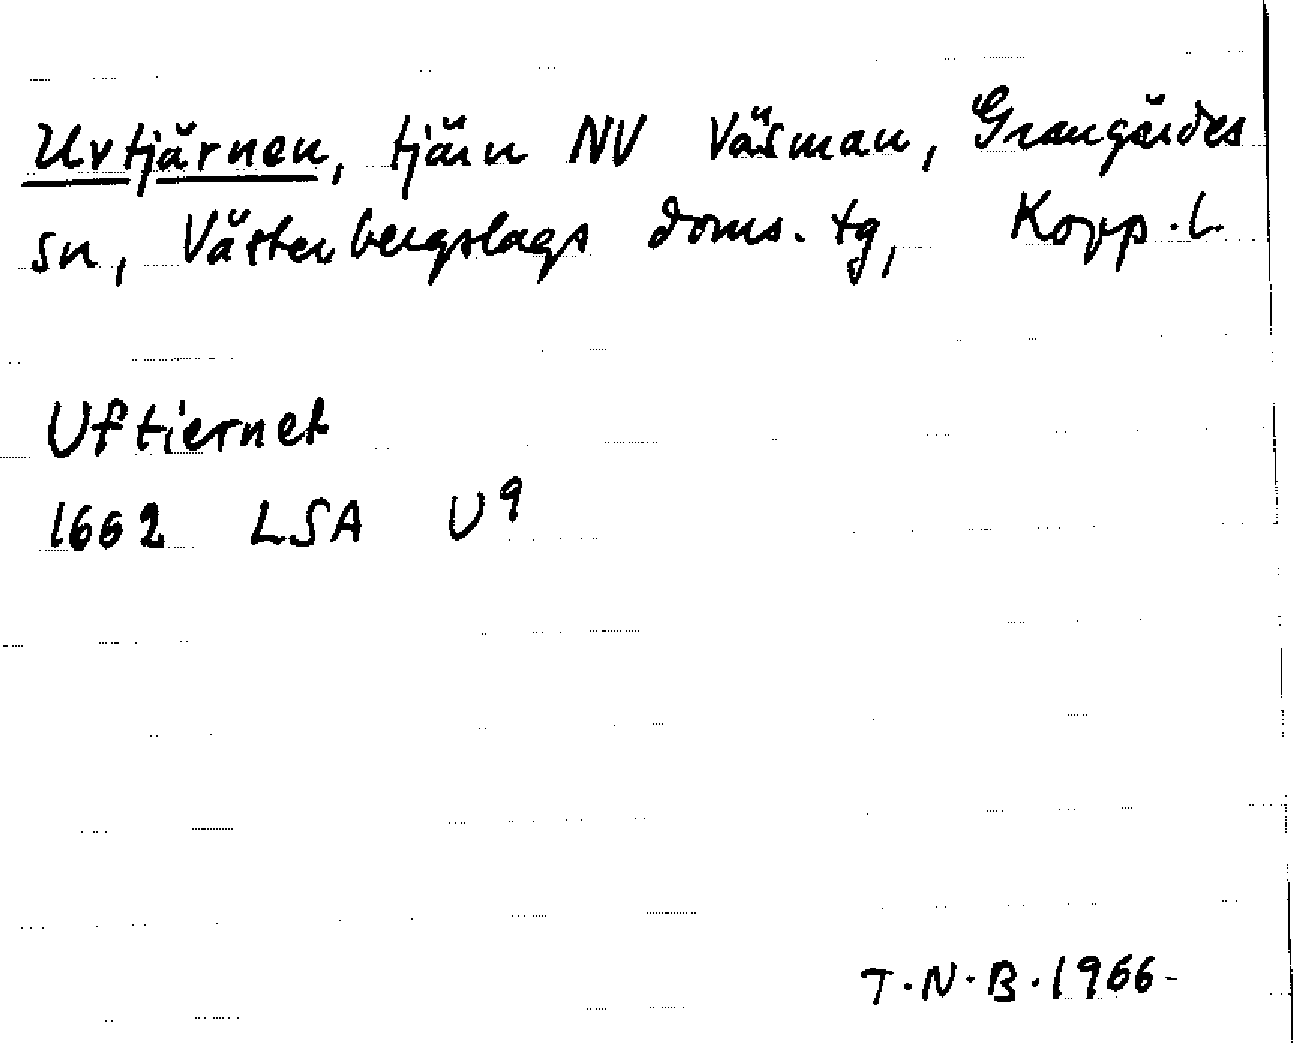 Uvtjärnen, tjärn NV Väsman, Grangärdes
sn, Västerbergslags doms. tg, Kopp. l.
Uftiernet
1662 LSA U9
T.N.B. 1966